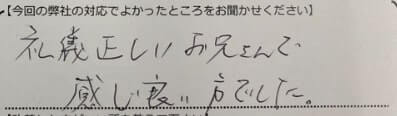 【今回の弊社の対応でよかったところをお聞かせください】
礼儀正しいお兄さんで
感じ良い方でした。